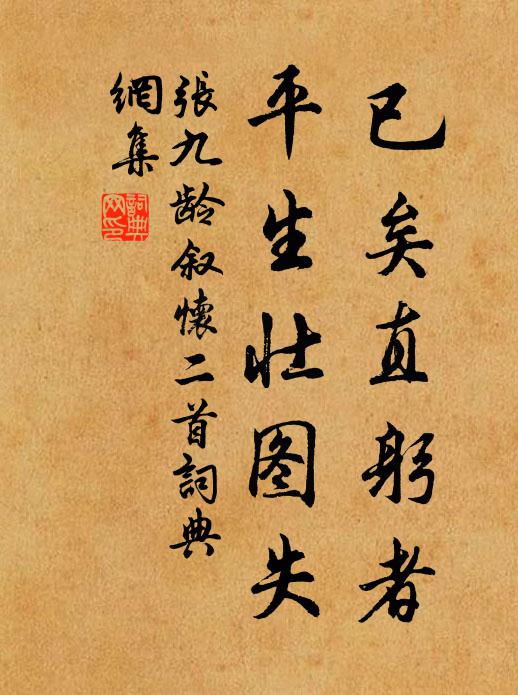 已矣直躬者
平生壮图失
張九龄叙懷二首詞典
網集
詞典
网印